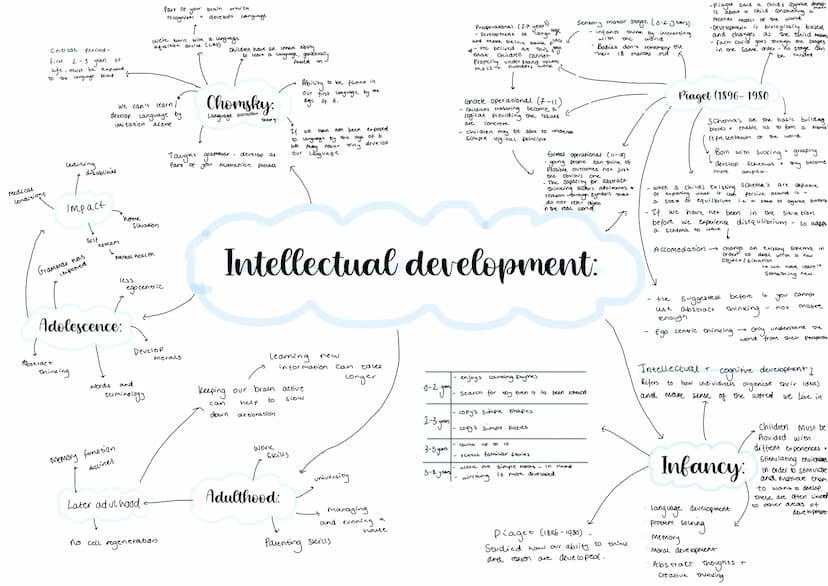 Part of your brain which
recognises + develops language
We're born with a language
aquisition device (LAD)
Children have an innate ability
to learn a language,
Critical period -
first 2-3 years of
life - must be exposed
to the language
Chomsky:
Language
We can't learn/
develop language by
imitation alone
Ability to be fluent in
our first language by the
age of 6
If we have not been exposed
to language by the age of 6
we may never truly develop
our language
Taught grammar - develop as
Part of your maturation process
Preoperational (2-7 years)
Sensory motor stage (0-2 years)
- infants think by interacting
with the world
- Babies don't remember
their 18 months old
- Development of language
- He believed at this
that children cannot
- Piaget said a child's cognitive
is about a child constructing a
model of the world
- Development is biologically based
and changes as the child
- Each child goes through the stages
in the same order - no stage can
be missed
Piaget (1896-1980
Concrete operational (7-11)
- childrens reasoning become
logical providing the issues
are concrete
- children may be able to
simple logical principle
formal operational (11-18)
- young people can think of
possible outcomes not just
the obvious one
- The capacity for abstract
thinking
reason through symbols that
do not refer objects
in the real world
Schema's are the basic building
blocks + enable us to form a
representation of the world
- Born with sucking + grasping
- develop schemas + they become
more complex
- When a child's existing schema's are capable
of explaining what it can perceive around it -
a state of equilibrium
- If we have not been in the situation
before we experience disequilibrium - so adapt
a schema to work
Accomodation → change an existing schema in
order to deal with a new
object/situation
↳ we have learnt
something new
- He suggested before 11 you cannot
use abstract thinking - not mature
enough
- Ego centric thinking → only understand the
world from their perspective
learning
disabilities
Medical
conditions
Impact
Home
situation
Self
esteem
Mental health
Intellectual development:
Grammar has
improved
less
egocentric
Adolescence:
Abstract
thinking
Develop
morals
Words and
terminology
Learning new
information can take
longer
keeping our brain active
can help to slow
down
Memory function
declines
Later adulhood
No cell regeneration
Work
skills
Adulthood:
university
managing
and running a
house
Parenting skills
0-2 years
- enjoys counting rhymes
- Search for toy even if its been
2-3 years
- copys simple shapes
- copys simple
3-5 years
- count up to 10
- familiar stories
5-8 years
- work out simple - in head
- writing is more developed
Intellectual + cognitive development?
Refers to how individuals organise their ideas
and make sense of the world we live in
Infancy:
Children must be
provided with
different experiences +
stimulating
in order to stimulate
and motivate them
to want to develop.
These are often linked
to other areas of
development
- Language development
- Problem solving
- Memory
- Moral development
- Abstract thoughts +
creative thinking
Piaget (1896-1980)
Studied how our ability to think
and reason are developed.